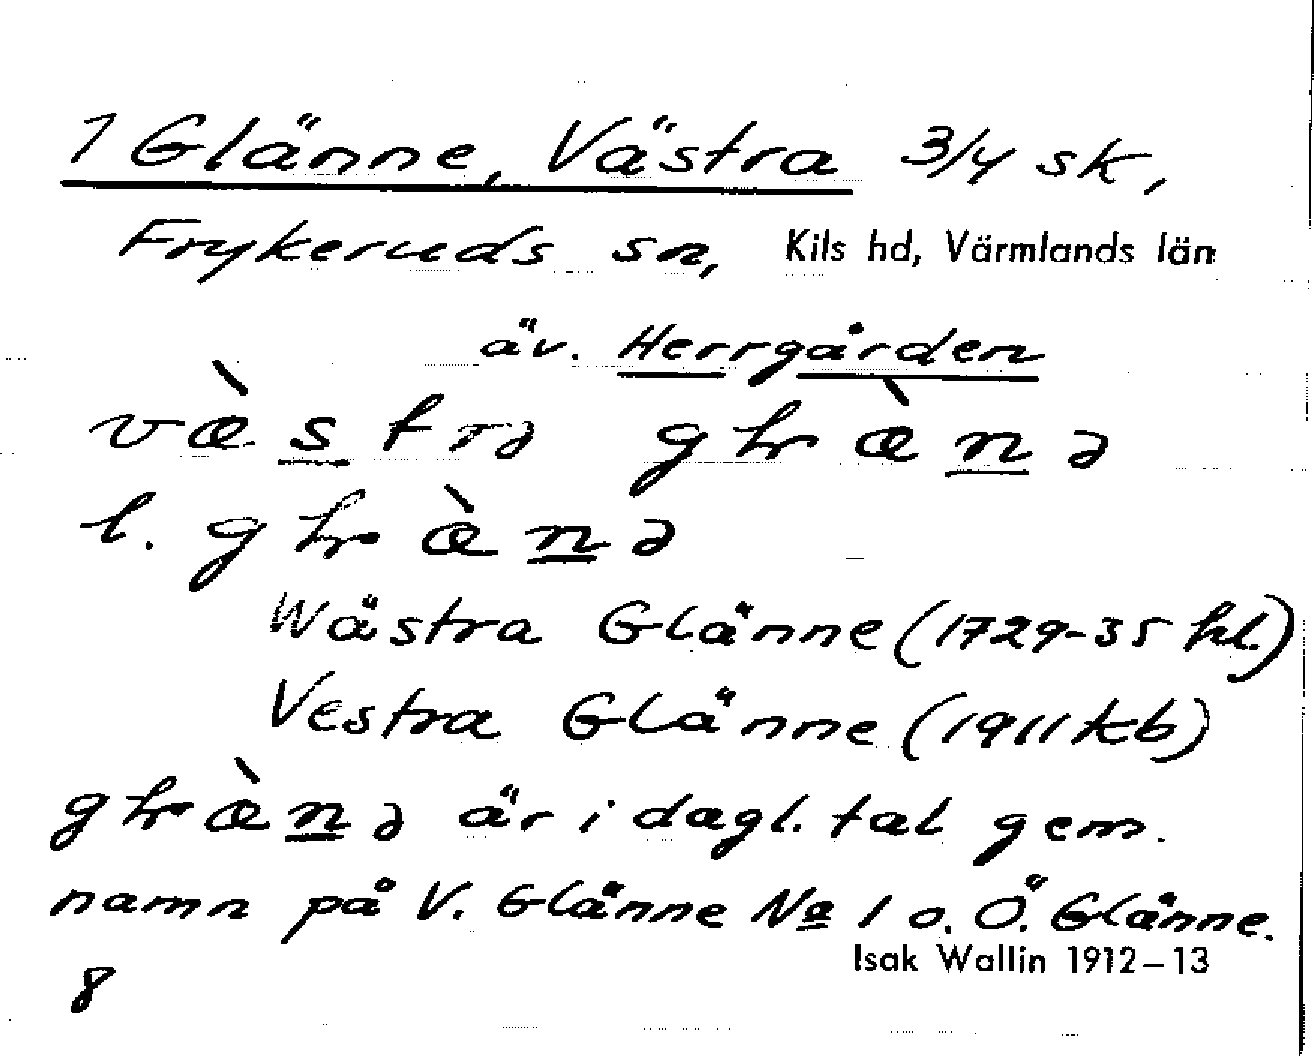 1 Glänne, Västra 3/4 sk,
Frykeruds sn, Kils hd, Värmlands län
äv. Herrgården
væ̀strə gɫæ̀nə
l. gɫæ̀nə
Wästra Glänne (1729-35 hl.)
Vestra Glänne (1911 kb)
gɫæ̀nə är i dagl. tal gem.
namn på V. Glänne No 1 o. Ö. Glänne.
Isak Wallin 1912–13
8